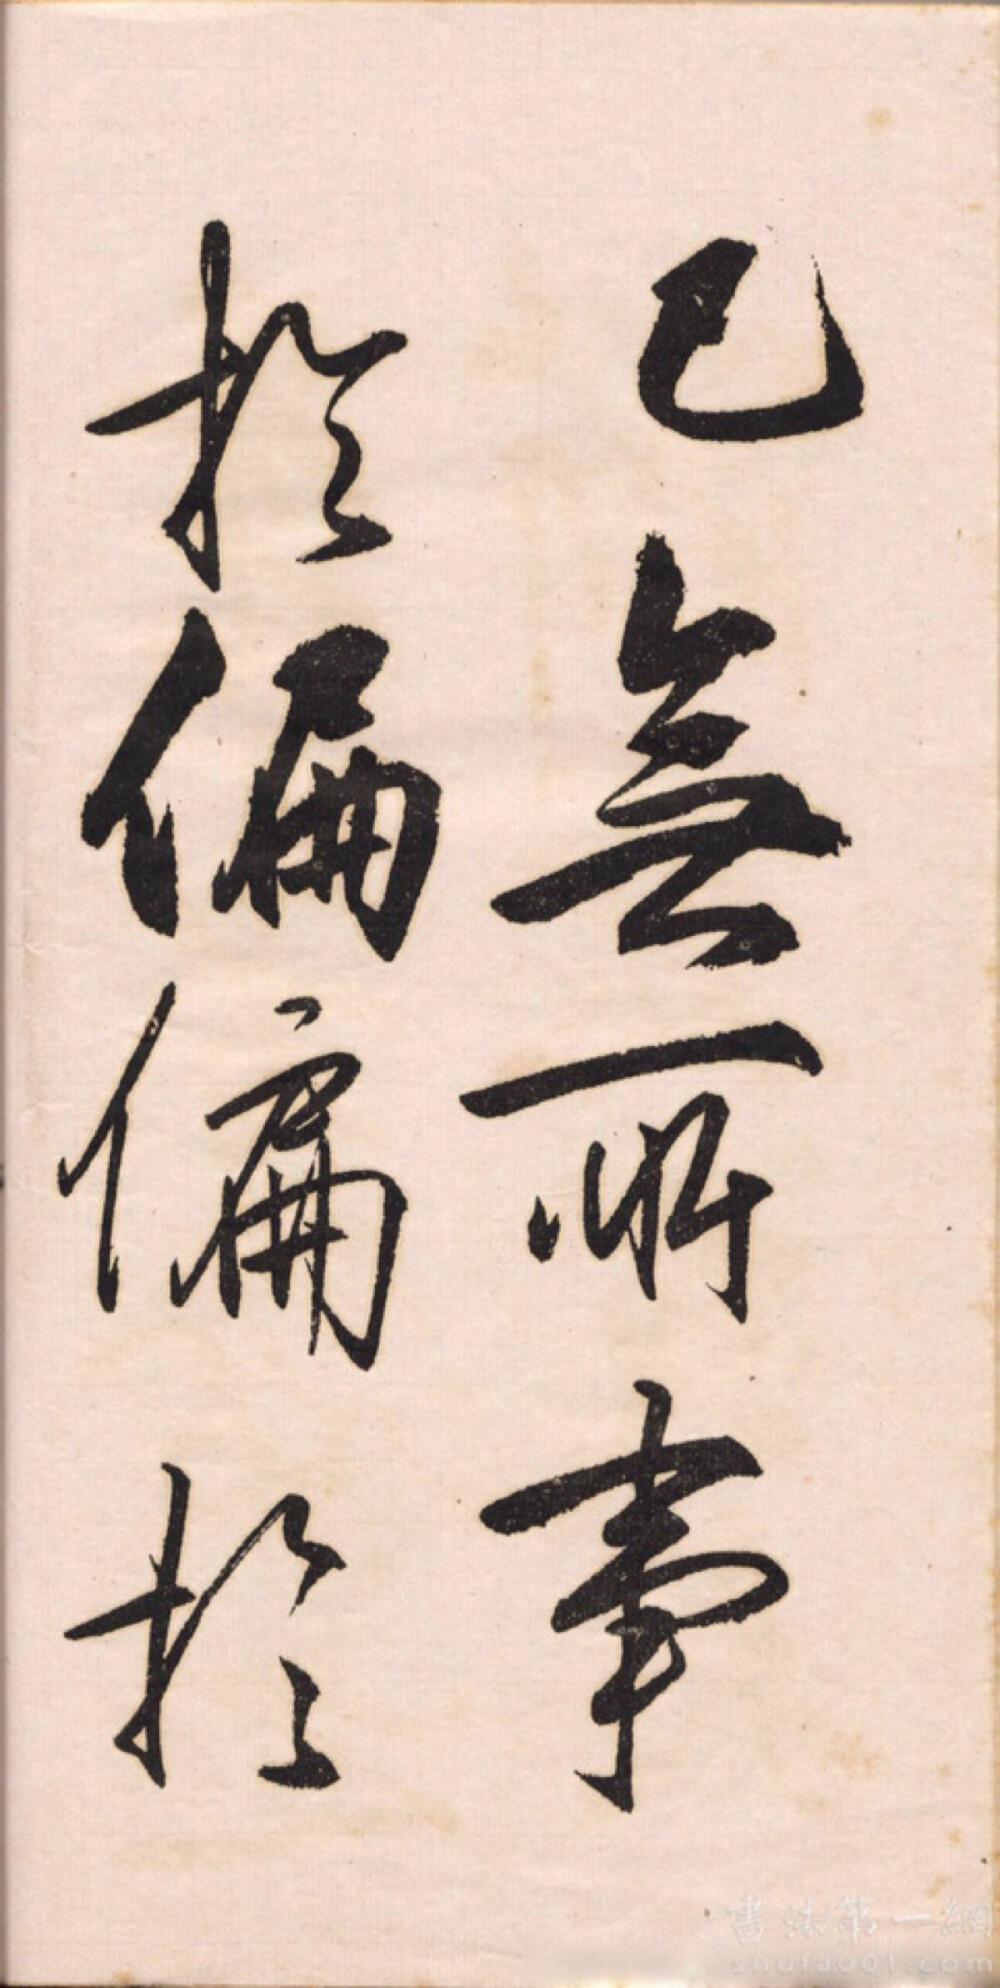 已無所事
於偏偏於
書法第一網
shufa001.com